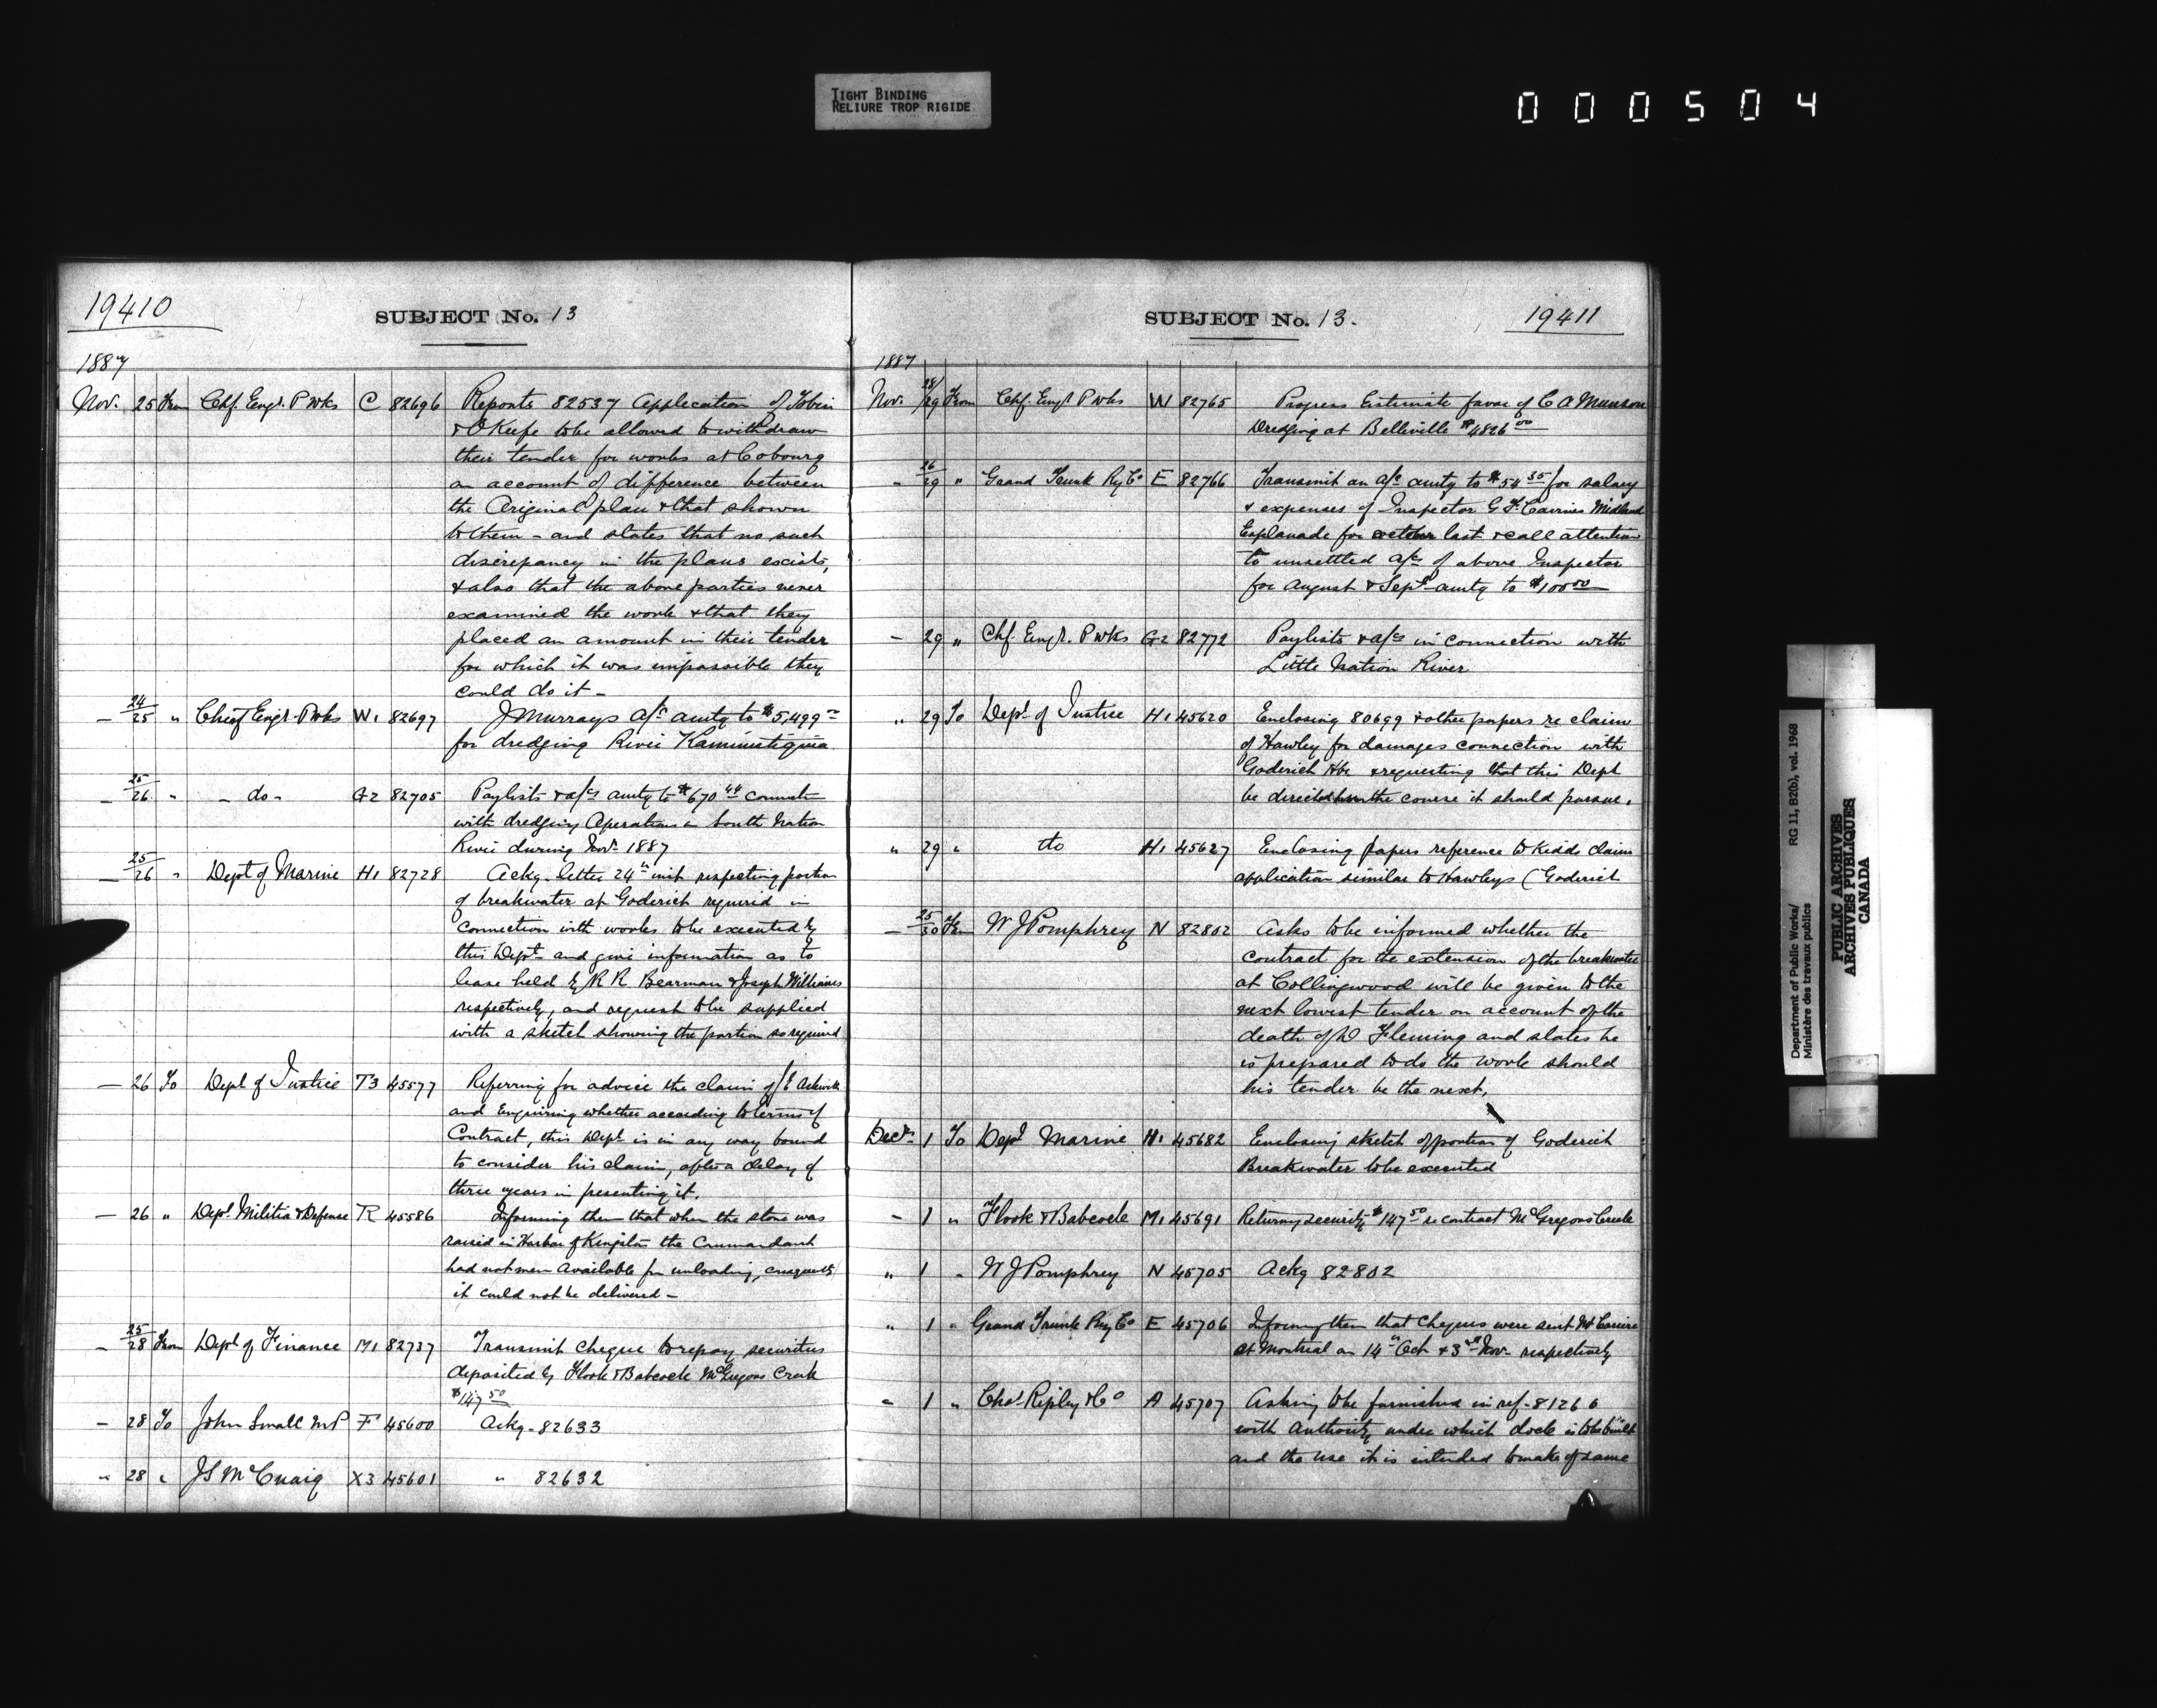 TIGHT BINDING
RELIURE TROP RIGIDE
000504
19410
SUBJECT No. 13
1887
Nov. 25 From Chf. Engr. P Wks C 82696 Reports 82537 Application of Tobin
& O'Keefe to be allowed to withdraw
their tender for works at Cobourg
on account of difference between
the Original plan & that shown
to them - and states that no such
discrepancy in the plans exists,
& also that the above parties never
examined the work & that they
placed an amount in their tender
for which it was impossible they
could do it -
— 24/25 " Chief Engr. P Wks W1 82697 J Murrays a/c amtg to $5,499
for dredging River Kaministiquia
— 25/26 " - do - G2 82705 Paylists & a/cs amtg to $670 44 connectn
with dredging Operations South Nation
River during Novr 1887
— 25/26 " Dept of Marine H1 82728 Ackg. letter 24" inst respecting portion
of breakwater at Goderich required in
connection with works to be executed by
this Dept. and give information as to
lease held by R R Bearman & Joseph Williams
respectively, and request to be supplied
with a sketch showing the portion so required
— 26 To Dept of Justice T3 45577 Referring for advice the claim of J E Askwith
and Enquiring whether according to terms of
Contract, this Dept. is in any way bound
to consider his claim, after a delay of
three years in presenting it.
— 26 " Dept Militia & Defense R 45586 Informing them that when the stone was
raised in Harbor of Kingston the Commandant
had not men available for unloading, consequently
it could not be delivered -
— 25/28 From Dept of Finance M1 82737 Transmit cheque to repay securities
deposited by Flook & Babcock McGregors Creek
$147 50
— 28 To John Small MP F 45600 Ackg. 82633
" 28 " J S McCuaig X3 45601 " 82632
SUBJECT No. 13.
19411
1887
Nov. 28/29 From Chf. Engr P Wks W 82765 Progress Estimate favor of C A Munson
Dredging at Belleville $4826 00
- 26/29 " Grand Trunk Ry Co E 82766 Transmit an a/c amtg to $54 35 for salary
& expenses of Inspector G F Cairnes Midland
Esplanade for october last & call attention
to unsettled a/cs of above Inspector
for August & Sept. amtg to $100 00
— 29 " Chf. Engr. P Wks G2 82772 Paylists & a/cs in connection with
Little Nation River
" 29 To Dept of Justice H1 45620 Enclosing 80699 & other papers re claim
of Hawley for damages connection with
Goderich Hbr & requesting that this Dept
be directed the course it should pursue.
" 29 " do H1 45627 Enclosing papers reference to Kidds claim
application similar to Hawleys (Goderich
— 25/30 From W J Pomphrey N 82802 Asks to be informed whether the
contract for the extension of the breakwater
at Collingwood will be given to the
next lowest tender on account of the
death of D Fleming and states he
is prepared to do the work should
his tender be the next.
Decr. 1 To Dept Marine H1 45682 Enclosing sketch of portion of Goderich
Breakwater to be executed
- 1 " Flook & Babcock M1 45691 Returng security $147 50 re contract McGregors Creek
" 1 " W J Pomphrey N 45705 Ackg 82802
" 1 " Grand Trunk Ry Co E 45706 Informg them that Cheques were sent Mr
at Montreal on 14" Oct & 3rd Nov. respectively
" 1 " Chas Ripley & Co A 45707 Asking to be furnished in ref. 81266
with Authority under which dock is to be built
and the use it is intended to make of same
Department of Public Works/
Ministère des travaux publics
RG 11, B2(b), vol. 1968
PUBLIC ARCHIVES
ARCHIVES PUBLIQUES
CANADA